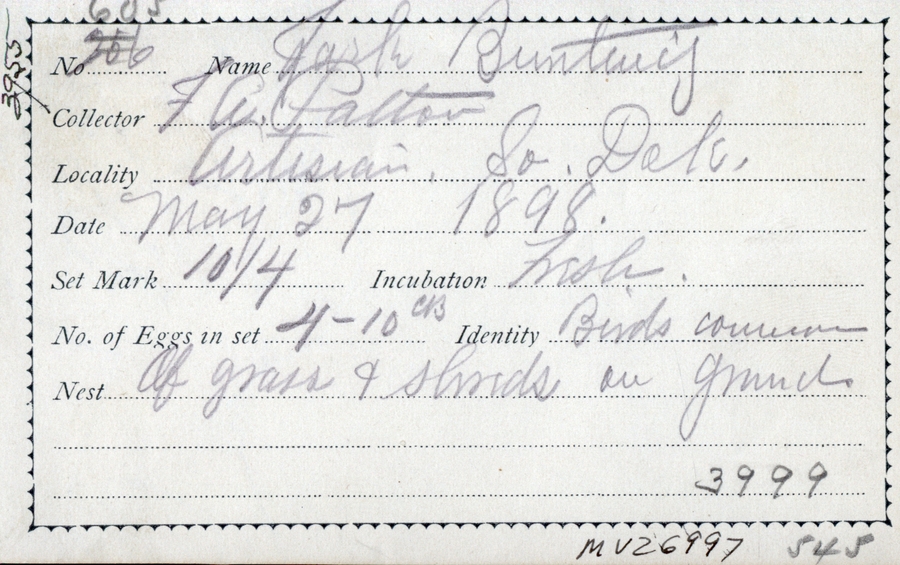 605
No. 706 Name Lark Bunting
3953
Collector F. A. Patton
Locality Artesian, So. Dak.
Date May 27 1898.
Set Mark 10/4 Incubation Fresh.
No. of Eggs in set 4-10 CB Identity Birds common
Nest Of grass & shreds on ground.
3999
MV26997 545